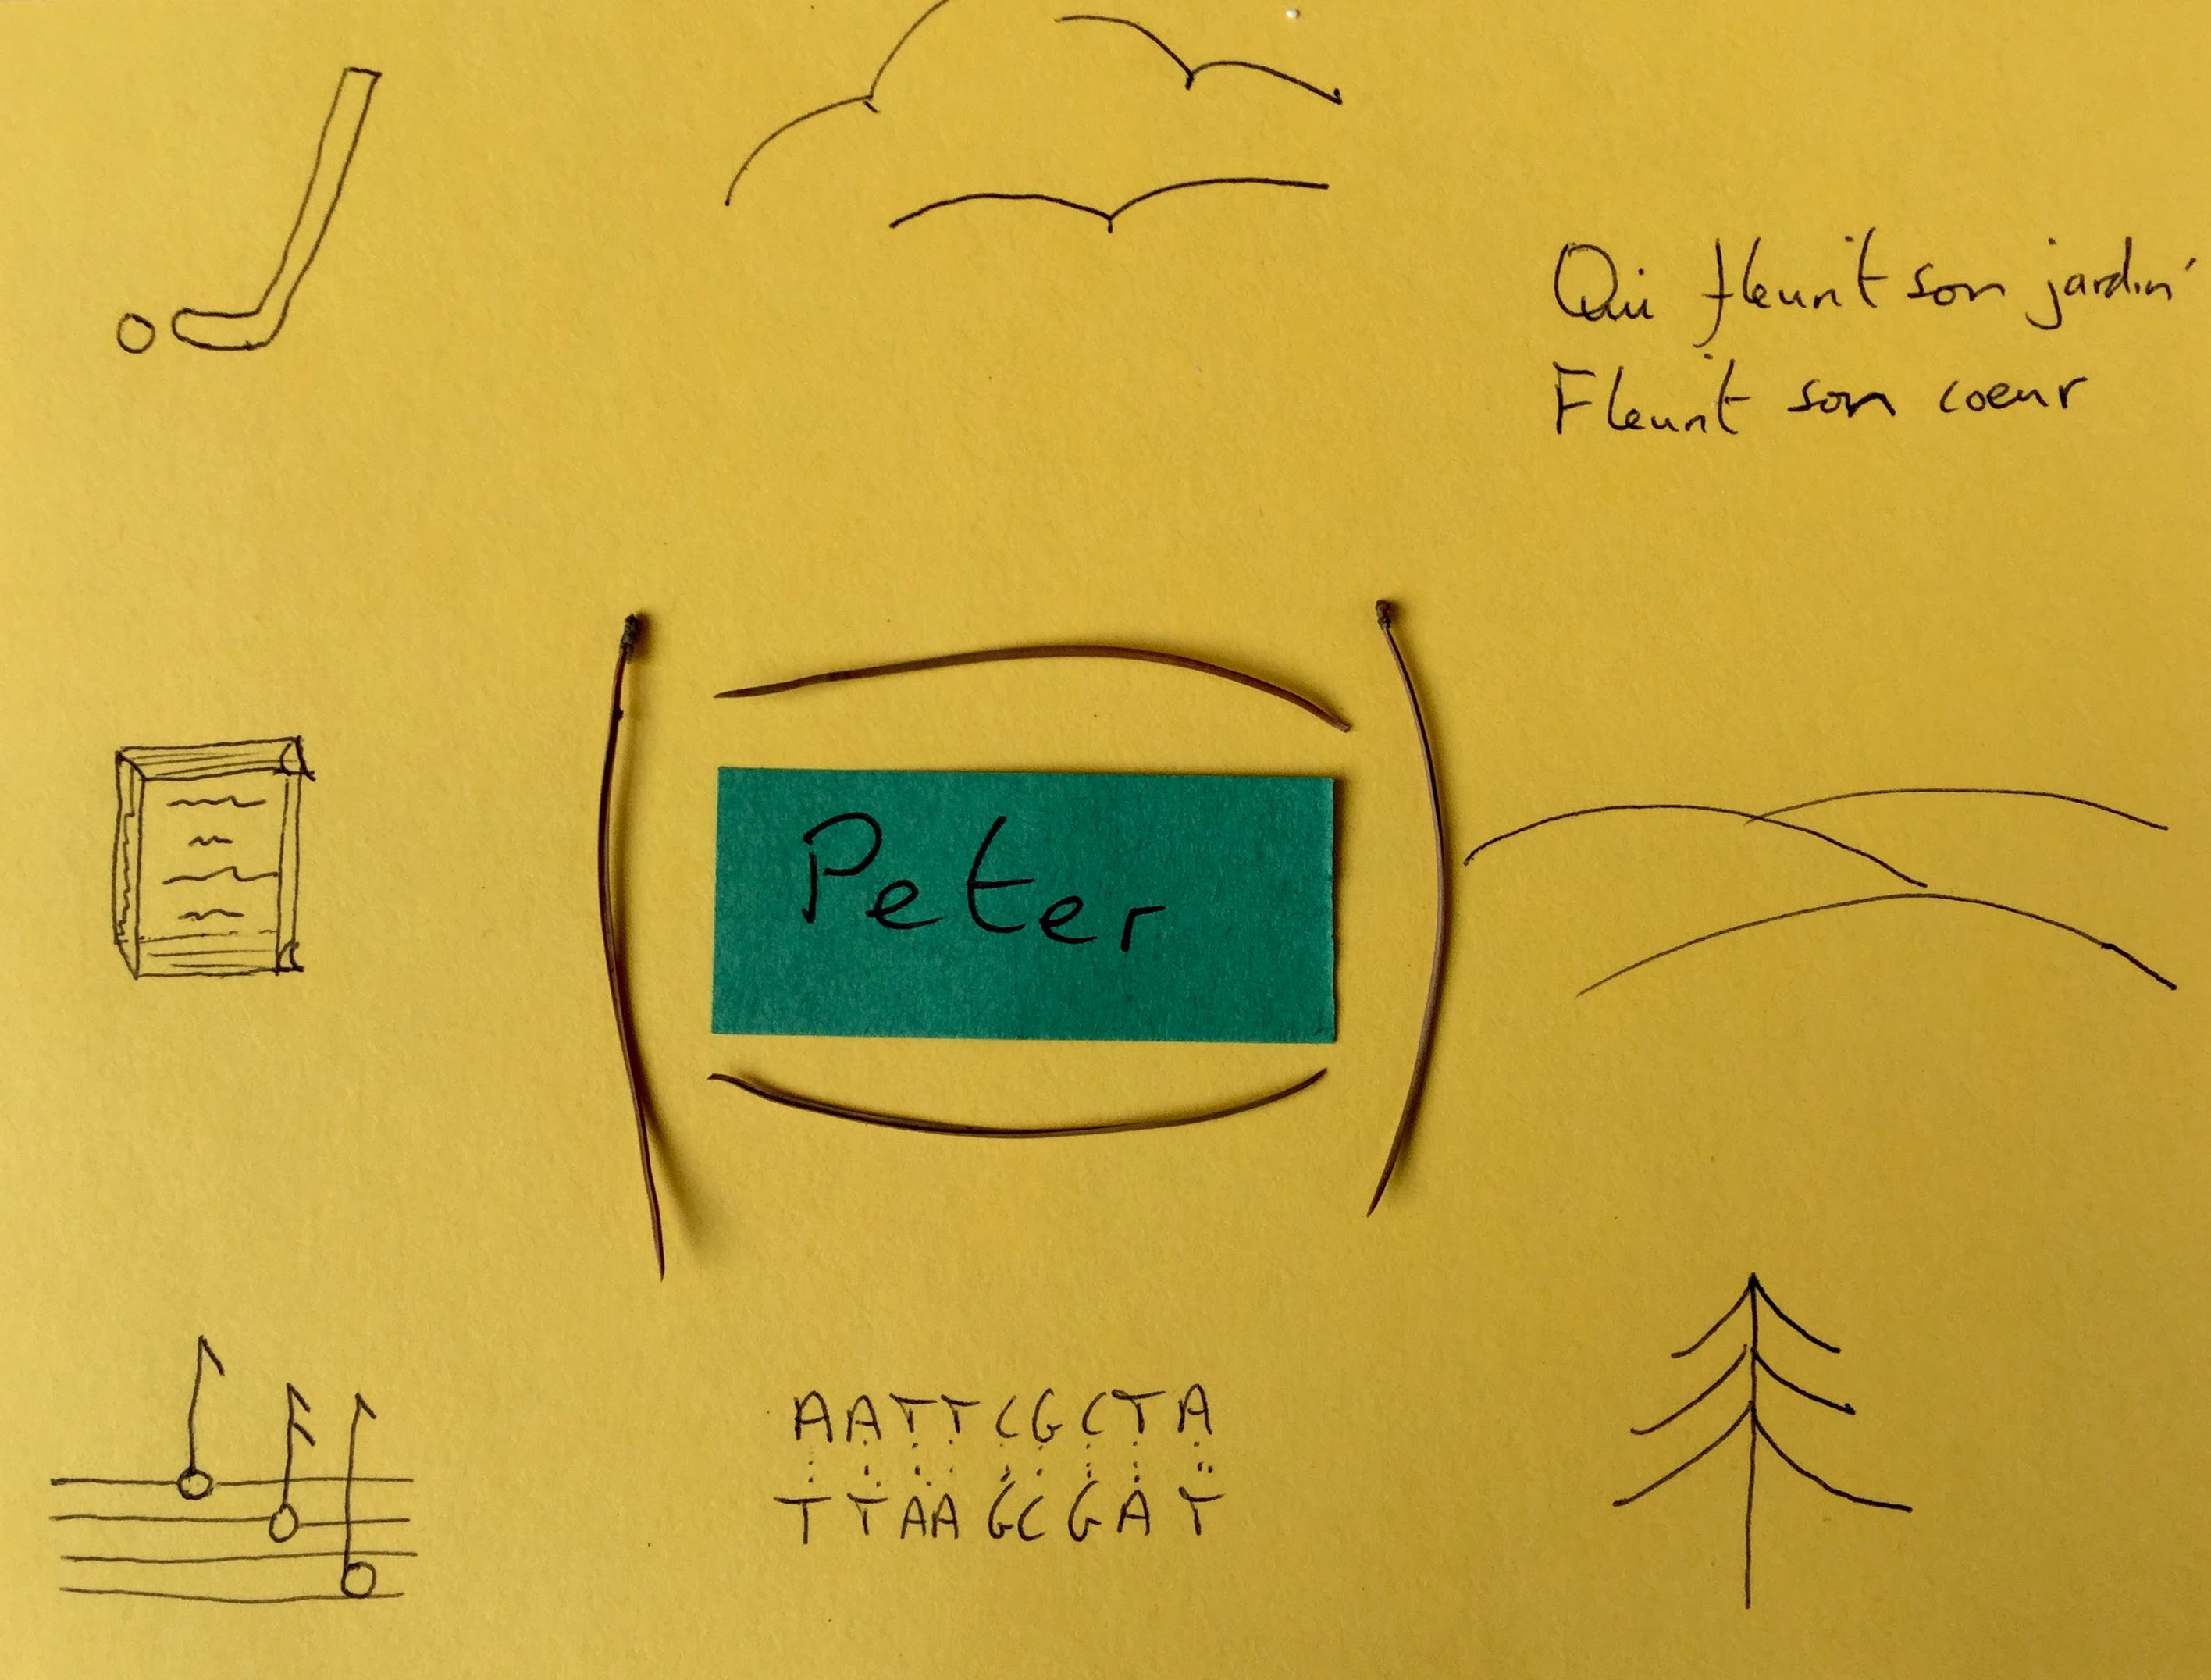 Qui fleurit son jardin
Fleurit son coeur
Peter
AATTCGCTA
TTAAGCGAT